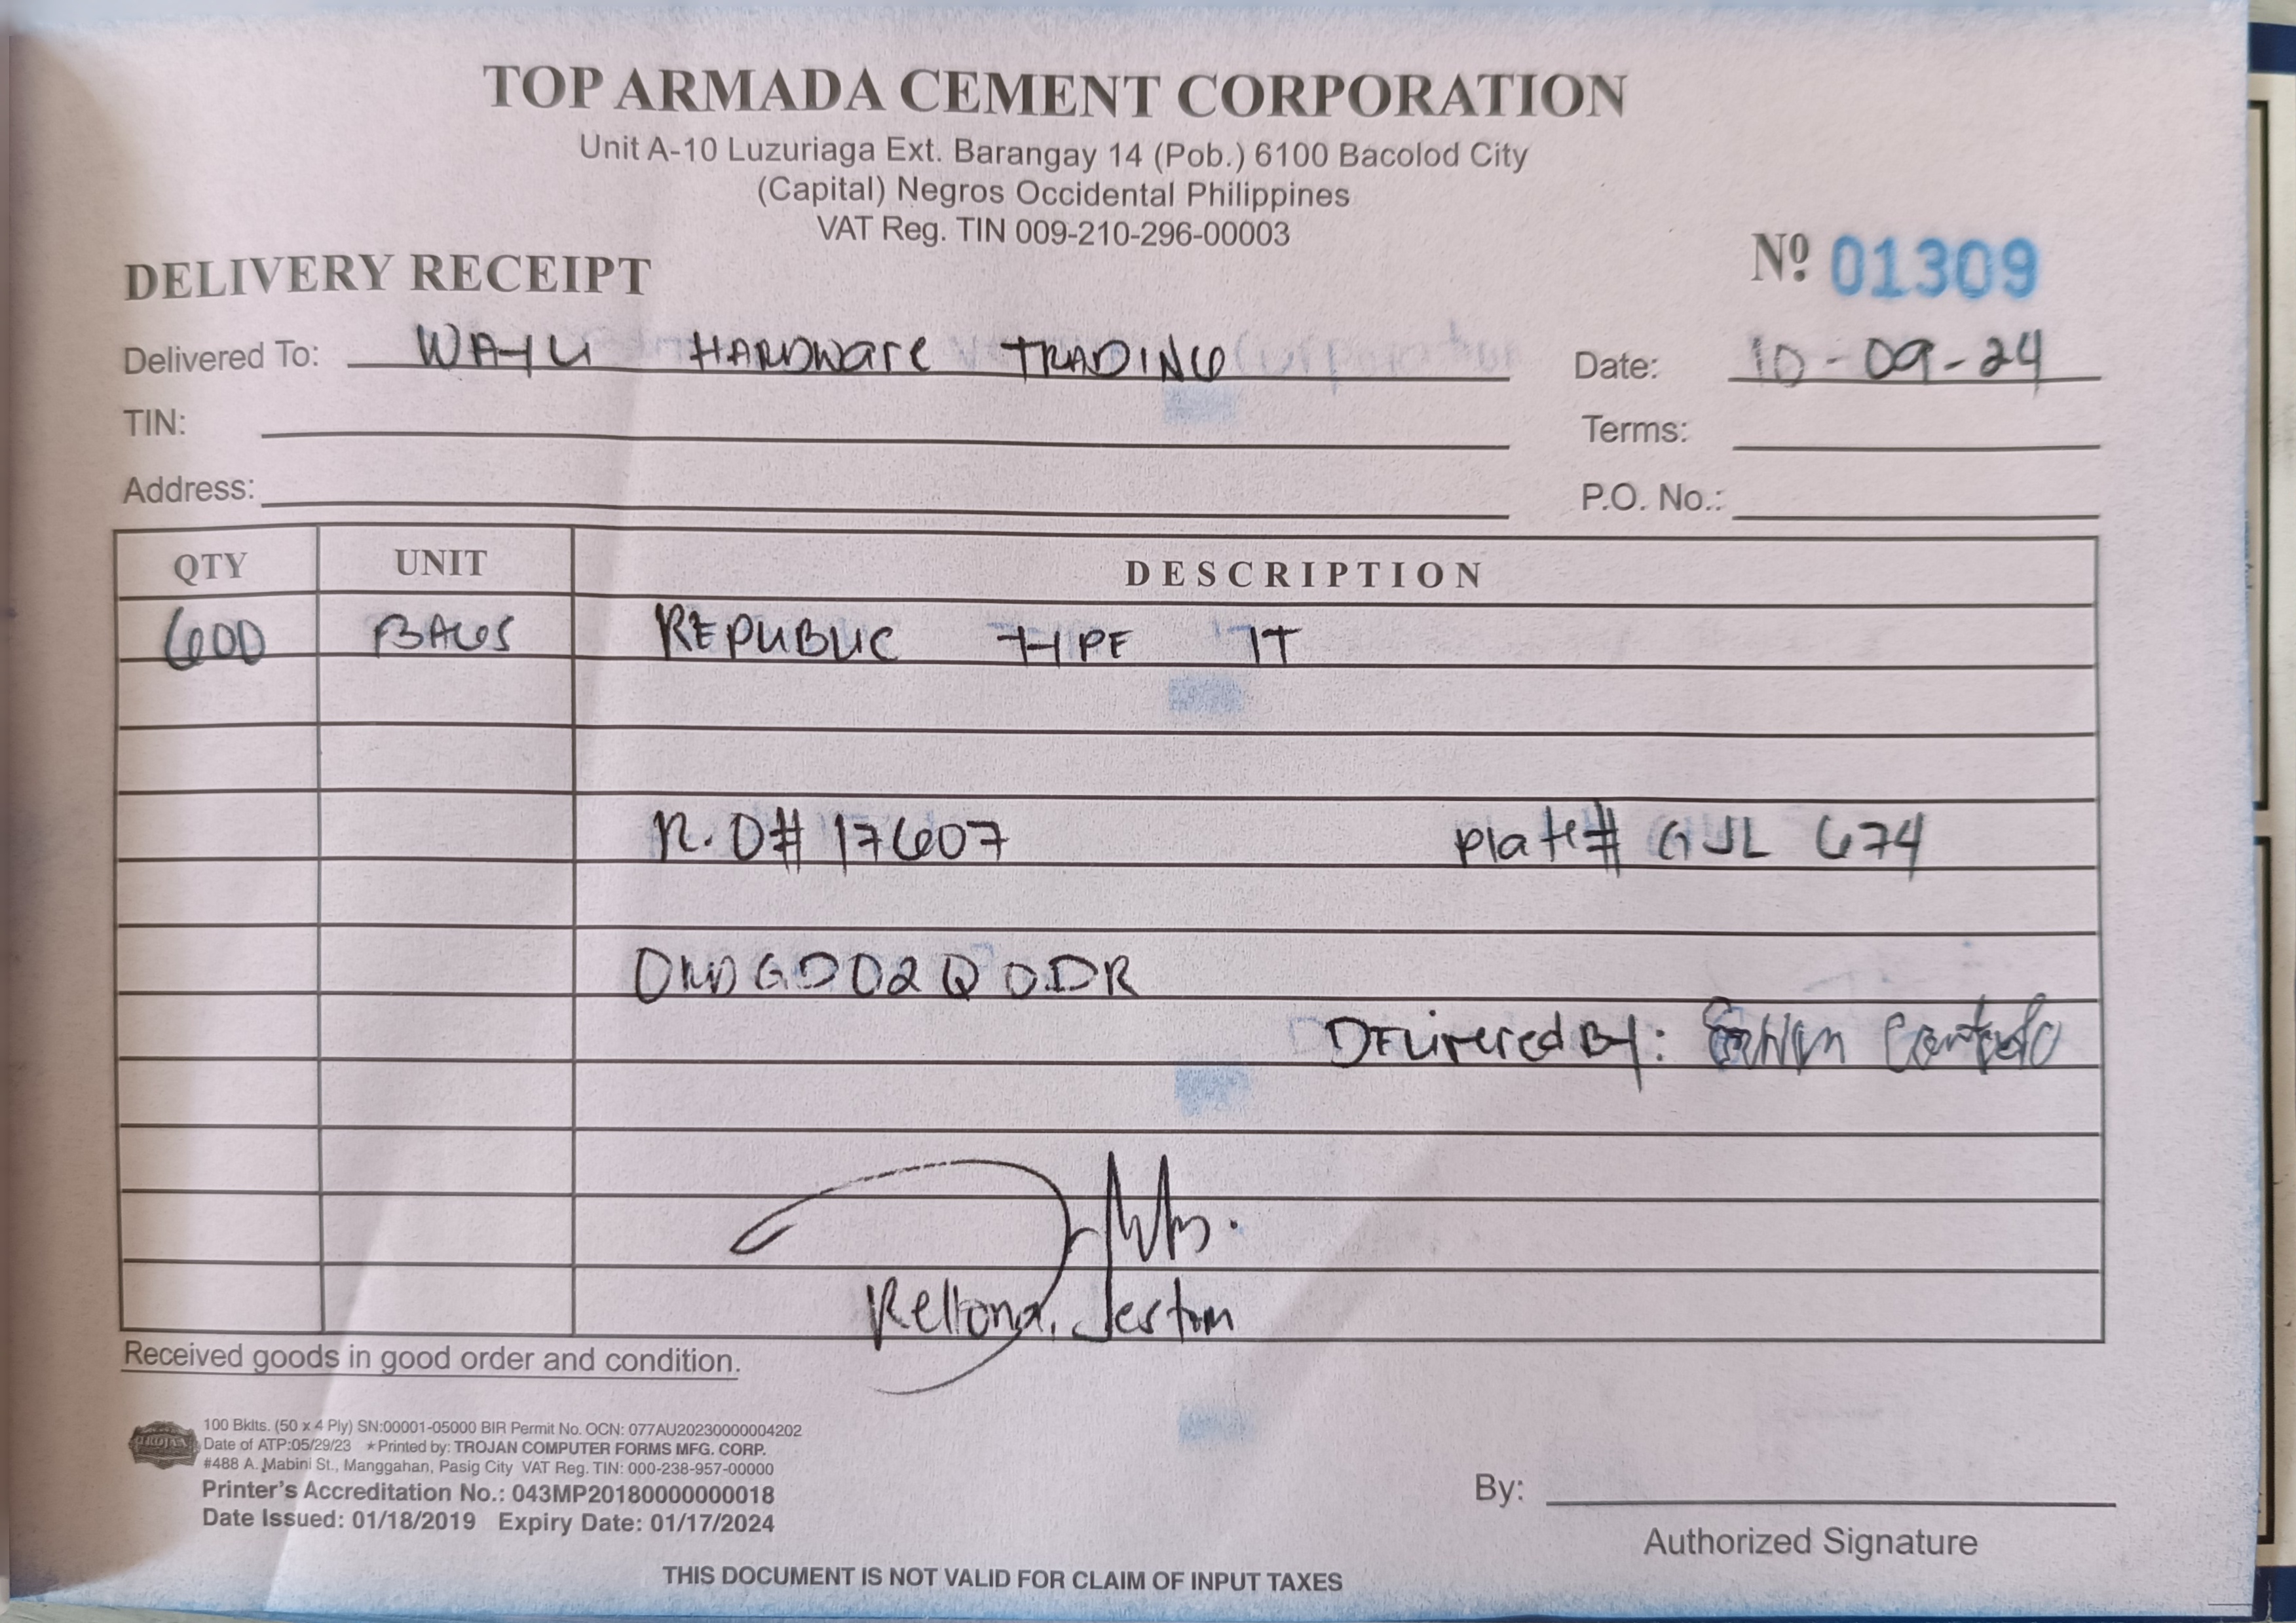 TOP ARMADA CEMENT CORPORATION
Unit A-10 Luzuriaga Ext. Barangay 14 (Pob.) 6100 Bacolod City
(Capital) Negros Occidental Philippines
VAT Reg. TIN 009-210-296-00003
DELIVERY RECEIPT Nº 01309
Delivered To: HARDWARE TRADING Date: 10-09-24
TIN: Terms:
Address: P.O. No.:
QTY UNIT DESCRIPTION
600 BAGS REPUBLIC TYPE 1T
R.O# 17607 plate# GJL 674
Delivered By:
Rellona, Jestom
Received goods in good order and condition.
TROJAN
100 Bklts. (50 x 4 Ply) SN:00001-05000 BIR Permit No. OCN: 077AU20230000004202
Date of ATP:05/29/23 ★Printed by: TROJAN COMPUTER FORMS MFG. CORP.
#488 A. Mabini St., Manggahan, Pasig City VAT Reg. TIN: 000-238-957-00000
Printer's Accreditation No.: 043MP20180000000018
Date Issued: 01/18/2019 Expiry Date: 01/17/2024
By:
Authorized Signature
THIS DOCUMENT IS NOT VALID FOR CLAIM OF INPUT TAXES